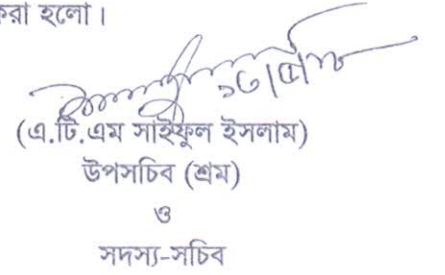 করা হলো।
(এ.টি.এম সাইফুল ইসলাম)
উপসচিব (শ্রম)
ও
সদস্য-সচিব